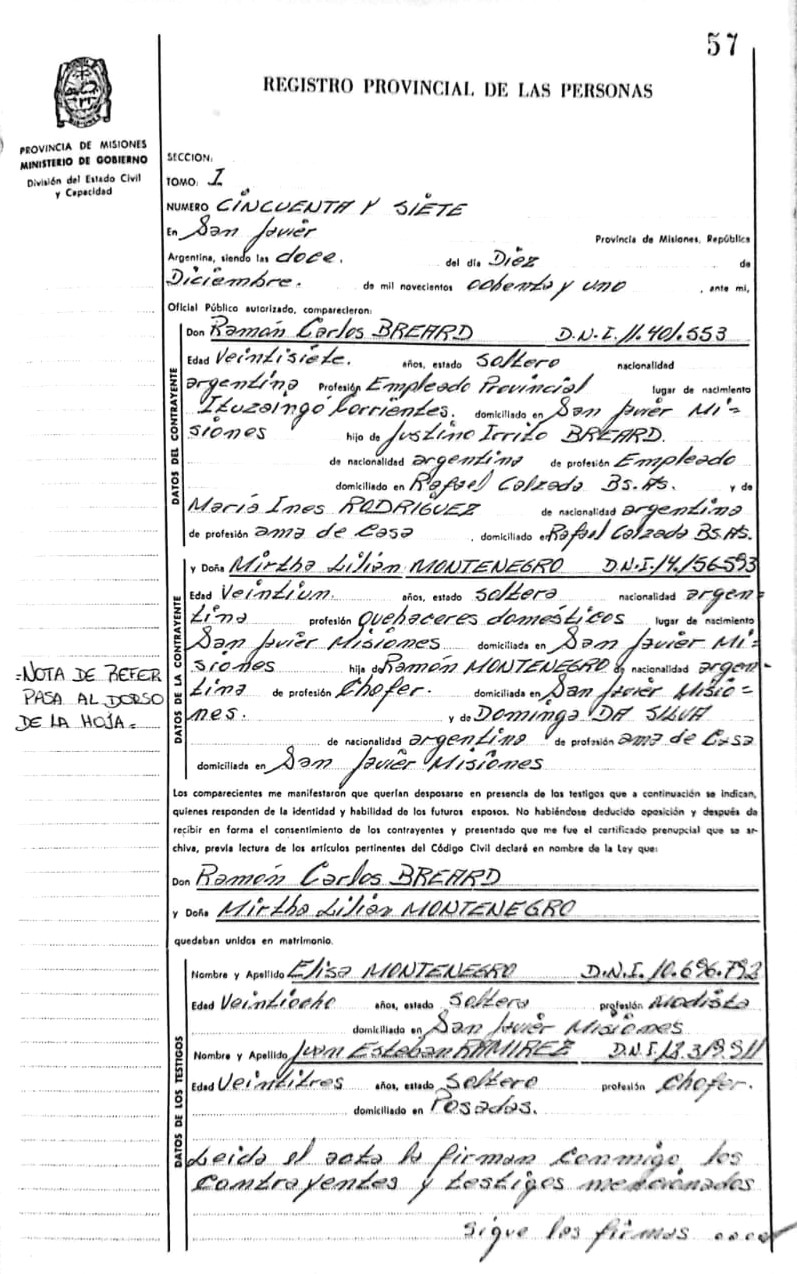 57
REGISTRO PROVINCIAL DE LAS PERSONAS
PROVINCIA DE MISIONES
MINISTERIO DE GOBIERNO
División del Estado Civil
y Capacidad
SECCION:
TOMO: I
NUMERO CINCUENTA Y SIETE
En San Javier Provincia de Misiones, República
Argentina, siendo las doce. del día Diez de
Diciembre. de mil novecientos ochenta y uno , ante mi,
Oficial Público autorizado, comparecieron:
DATOS DEL CONTRAYENTE
Don Ramón Carlos BREARD D.N.I. 11.401.553
Edad Veintisiete. años, estado Soltero nacionalidad
argentina Profesión Empleado Provincial lugar de nacimiento
Ituzaingó Corrientes. domiciliado en San Javier Mi-
siones hijo de Justino Irrito BREARD.
de nacionalidad argentina de profesión Empleado
domiciliado en Rafael Calzada Bs.As. y de
María Ines RODRIGUEZ de nacionalidad argentina
de profesión ama de Casa , domiciliado en Rafael Calzada Bs.As.
DATOS DE LA CONTRAYENTE
y Doña Mirtha Lilian MONTENEGRO D.N.I. 14.156.593
Edad Veintiun. años, estado Soltera nacionalidad argen-
tina profesión quehaceres domésticos lugar de nacimiento
San Javier Misiones domiciliada en San Javier Mi-
siones hija de Ramón MONTENEGRO de nacionalidad argen-
tina de profesión Chofer. domiciliada en San Javier Misio-
nes. y de Dominga DA SILVA
de nacionalidad argentina de profesión ama de Casa
domiciliada en San Javier Misiones
=NOTA DE REFER
PASA AL DORSO
DE LA HOJA=
Los comparecientes me manifestaron que querían desposarse en presencia de los testigos que a continuación se indican,
quienes responden de la identidad y habilidad de los futuros esposos. No habiéndose deducido oposición y después de
recibir en forma el consentimiento de los contrayentes y presentado que me fue el certificado prenupcial que se ar-
chiva, previa lectura de los artículos pertinentes del Código Civil declaré en nombre de la Ley que:
Don Ramón Carlos BREARD
y Doña Mirtha Lilian MONTENEGRO
quedaban unidos en matrimonio.
DATOS DE LOS TESTIGOS
Nombre y Apellido Elisa MONTENEGRO D.N.I. 10.696.792
Edad Veintiocho años, estado Soltera profesión Modista
domiciliado en San Javier Misiones
Nombre y Apellido Juan Esteban RAMIREZ D.N.I.
Edad Veintitres años, estado Soltero profesión Chofer.
domiciliado en Posadas.
Leida el acta la firman conmigo los
contrayentes y testigos mencionados
sigue las firmas ....